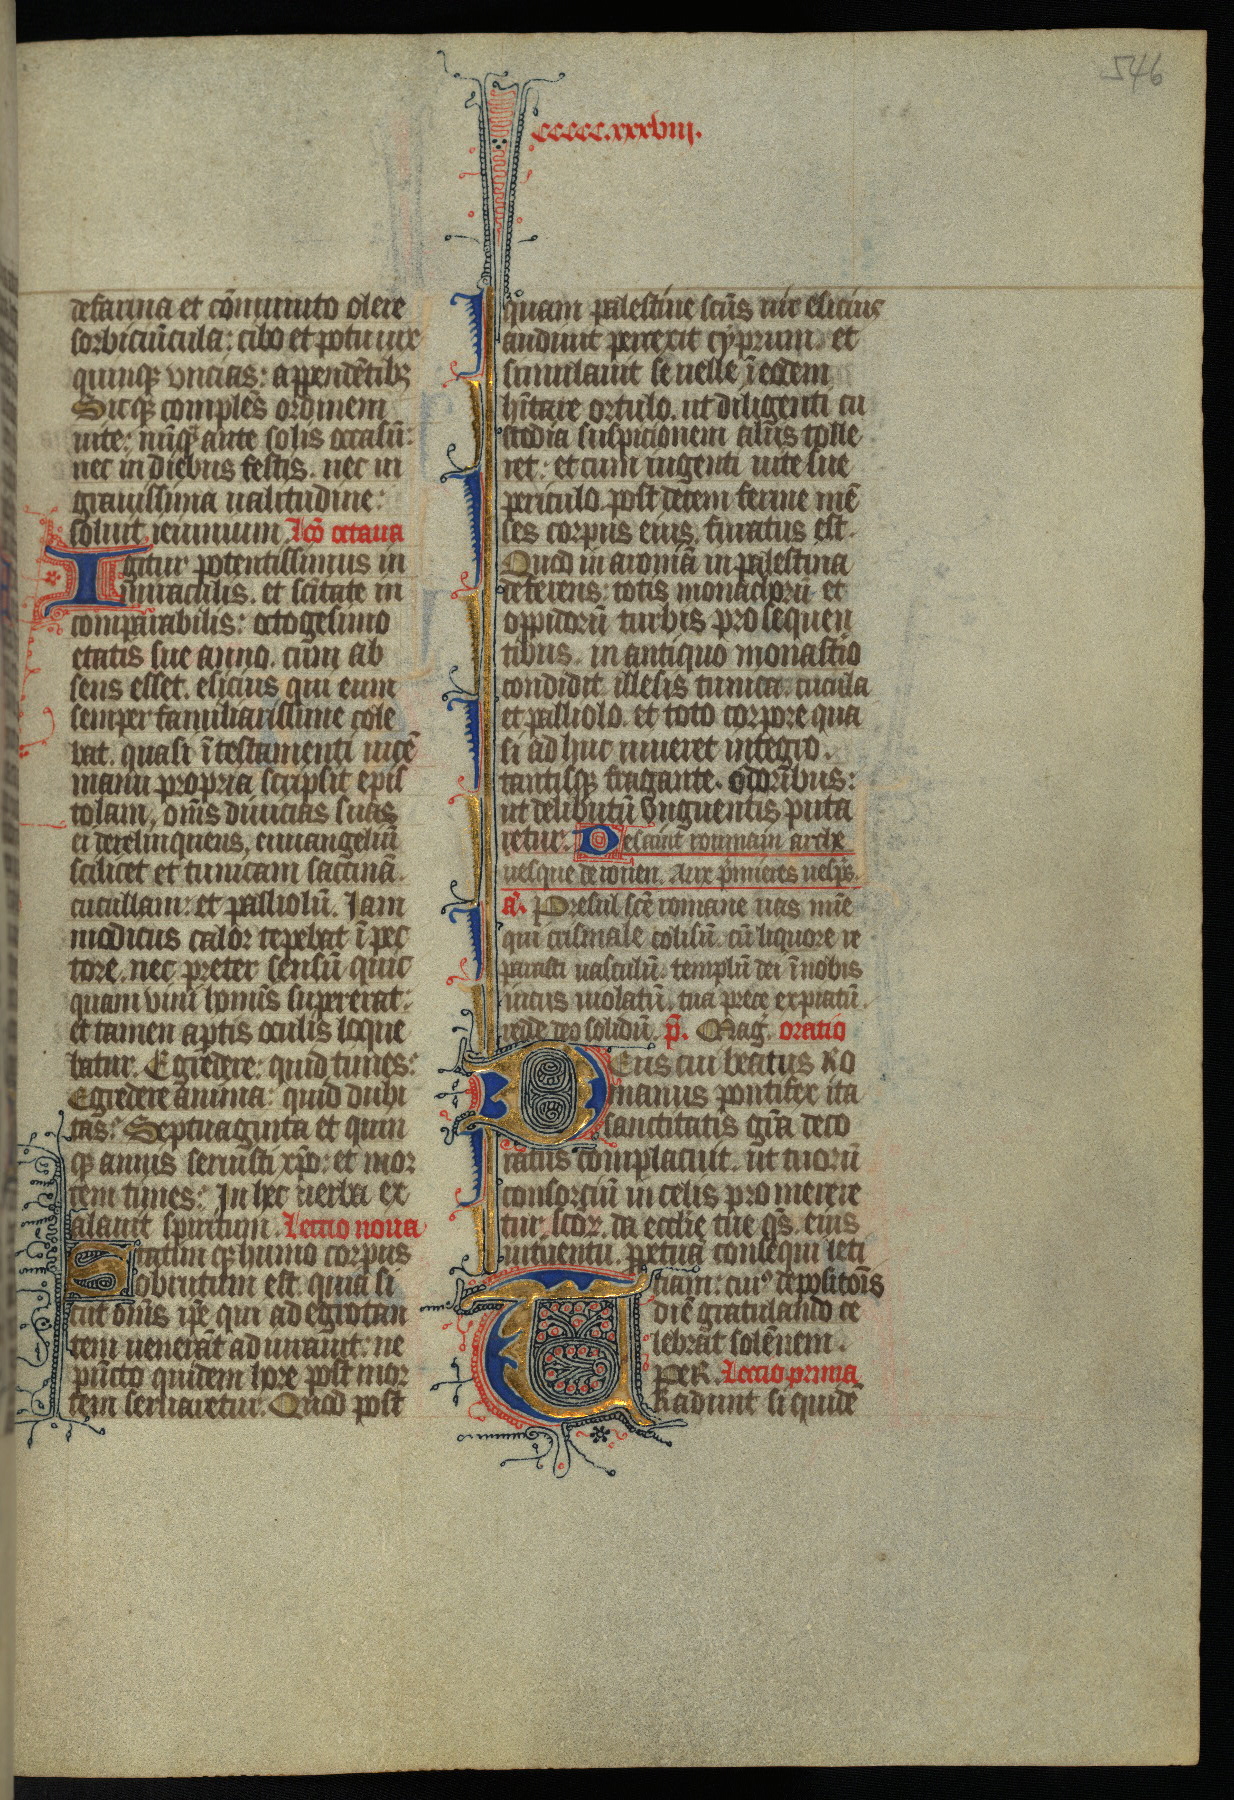 546
ccccc.xxxviii.
de farina et cōminuto olere
sorbiciūcula: cibo et potu vix
quinqꝫ vncias: appendētibꝫ
Sicqꝫ complēs ordinem
uite: nūqꝫ ante solis occasū:
nec in diebus festis. nec in
grauissima ualitudine:
soluit ieiunium Lc̄o octaua
Igitur potentissimus in
miraculis. et sc̄itate in
comparabilis: octogesimo
etatis sue anno. cum ab
sens esset. esicius qui eum
semper familiarissime cole
bat. quasi ī testamenti uicē
manu propria scripsit epis
tolam, om̄s diuicias suas
ei derelinquens, euuangeliū
scilicet et tunicam saccinā.
cucullam: et palliolū. Jam
modicus calor tepebat ī pec
tore. nec preter sensū quic
quam viui hominis supererat:
et tamen aptis oculis loque
batur. Egredere: quid times:
Egredere anima: quid dubi
tas: Septuaginta et quin
qꝫ annis seruisti xp̄o: et mor
tem times: In hec uerba ex
alauit spiritum. Leccio nona
Statim qꝫ humo corpus
obrutum est. quia si
cut om̄s ip̄e qui ad egrotan
tem uenerāt adiurauit: ne
pūcto quidem hore post mor
tem seruaretur. Quod post
quam palestine sc̄us uir esicius
audiuit perrexit cyprum. et
simulauit se uelle ī eodem
hītare ortulo. ut diligenti cu
stodia suspicionem aliis tolle
ret: et cum ingenti uite sue
periculo. post decem ferme mē
ses corpus eius. furatus est.
Quod in aiomā in palestina
deferens: totis monachorū et
oppidorū turbis prosequen
tibus. in antiquo monastio
condidit illesis tunica. cuculla
et palliolo. et toto corpore qua
si ad huc uiueret integro.
tantisqꝫ fragante. odoribus:
ut delibutū vnguentis puta
retur. De saint rommain arche
uesque de rouen. Aux p̄mieres uesp̄s.
a͞. Presul sc̄e romane uas mūe
qui crismale colisū cū liquore re
parasti uasculū. templū dei ī nobis
intus uiolatū. tua prece expiatū.
rede deo solidū. p̄. Maḡ. oratio
Deus cui beatus Ro
manus pontifex ita
sanctitatis gr̄a deco
ratus complacuit. ut tuorū
consorciū in celis promerere
tur: scōꝝ. da ecclīe tue qs̄. eius
intuentu. ꝑpetua consequi leti
tiam: cuiꝰ deposicōis
diē gratulando ce
lebrat solēnem.
PER. Leccio prima
TRadunt si quidē